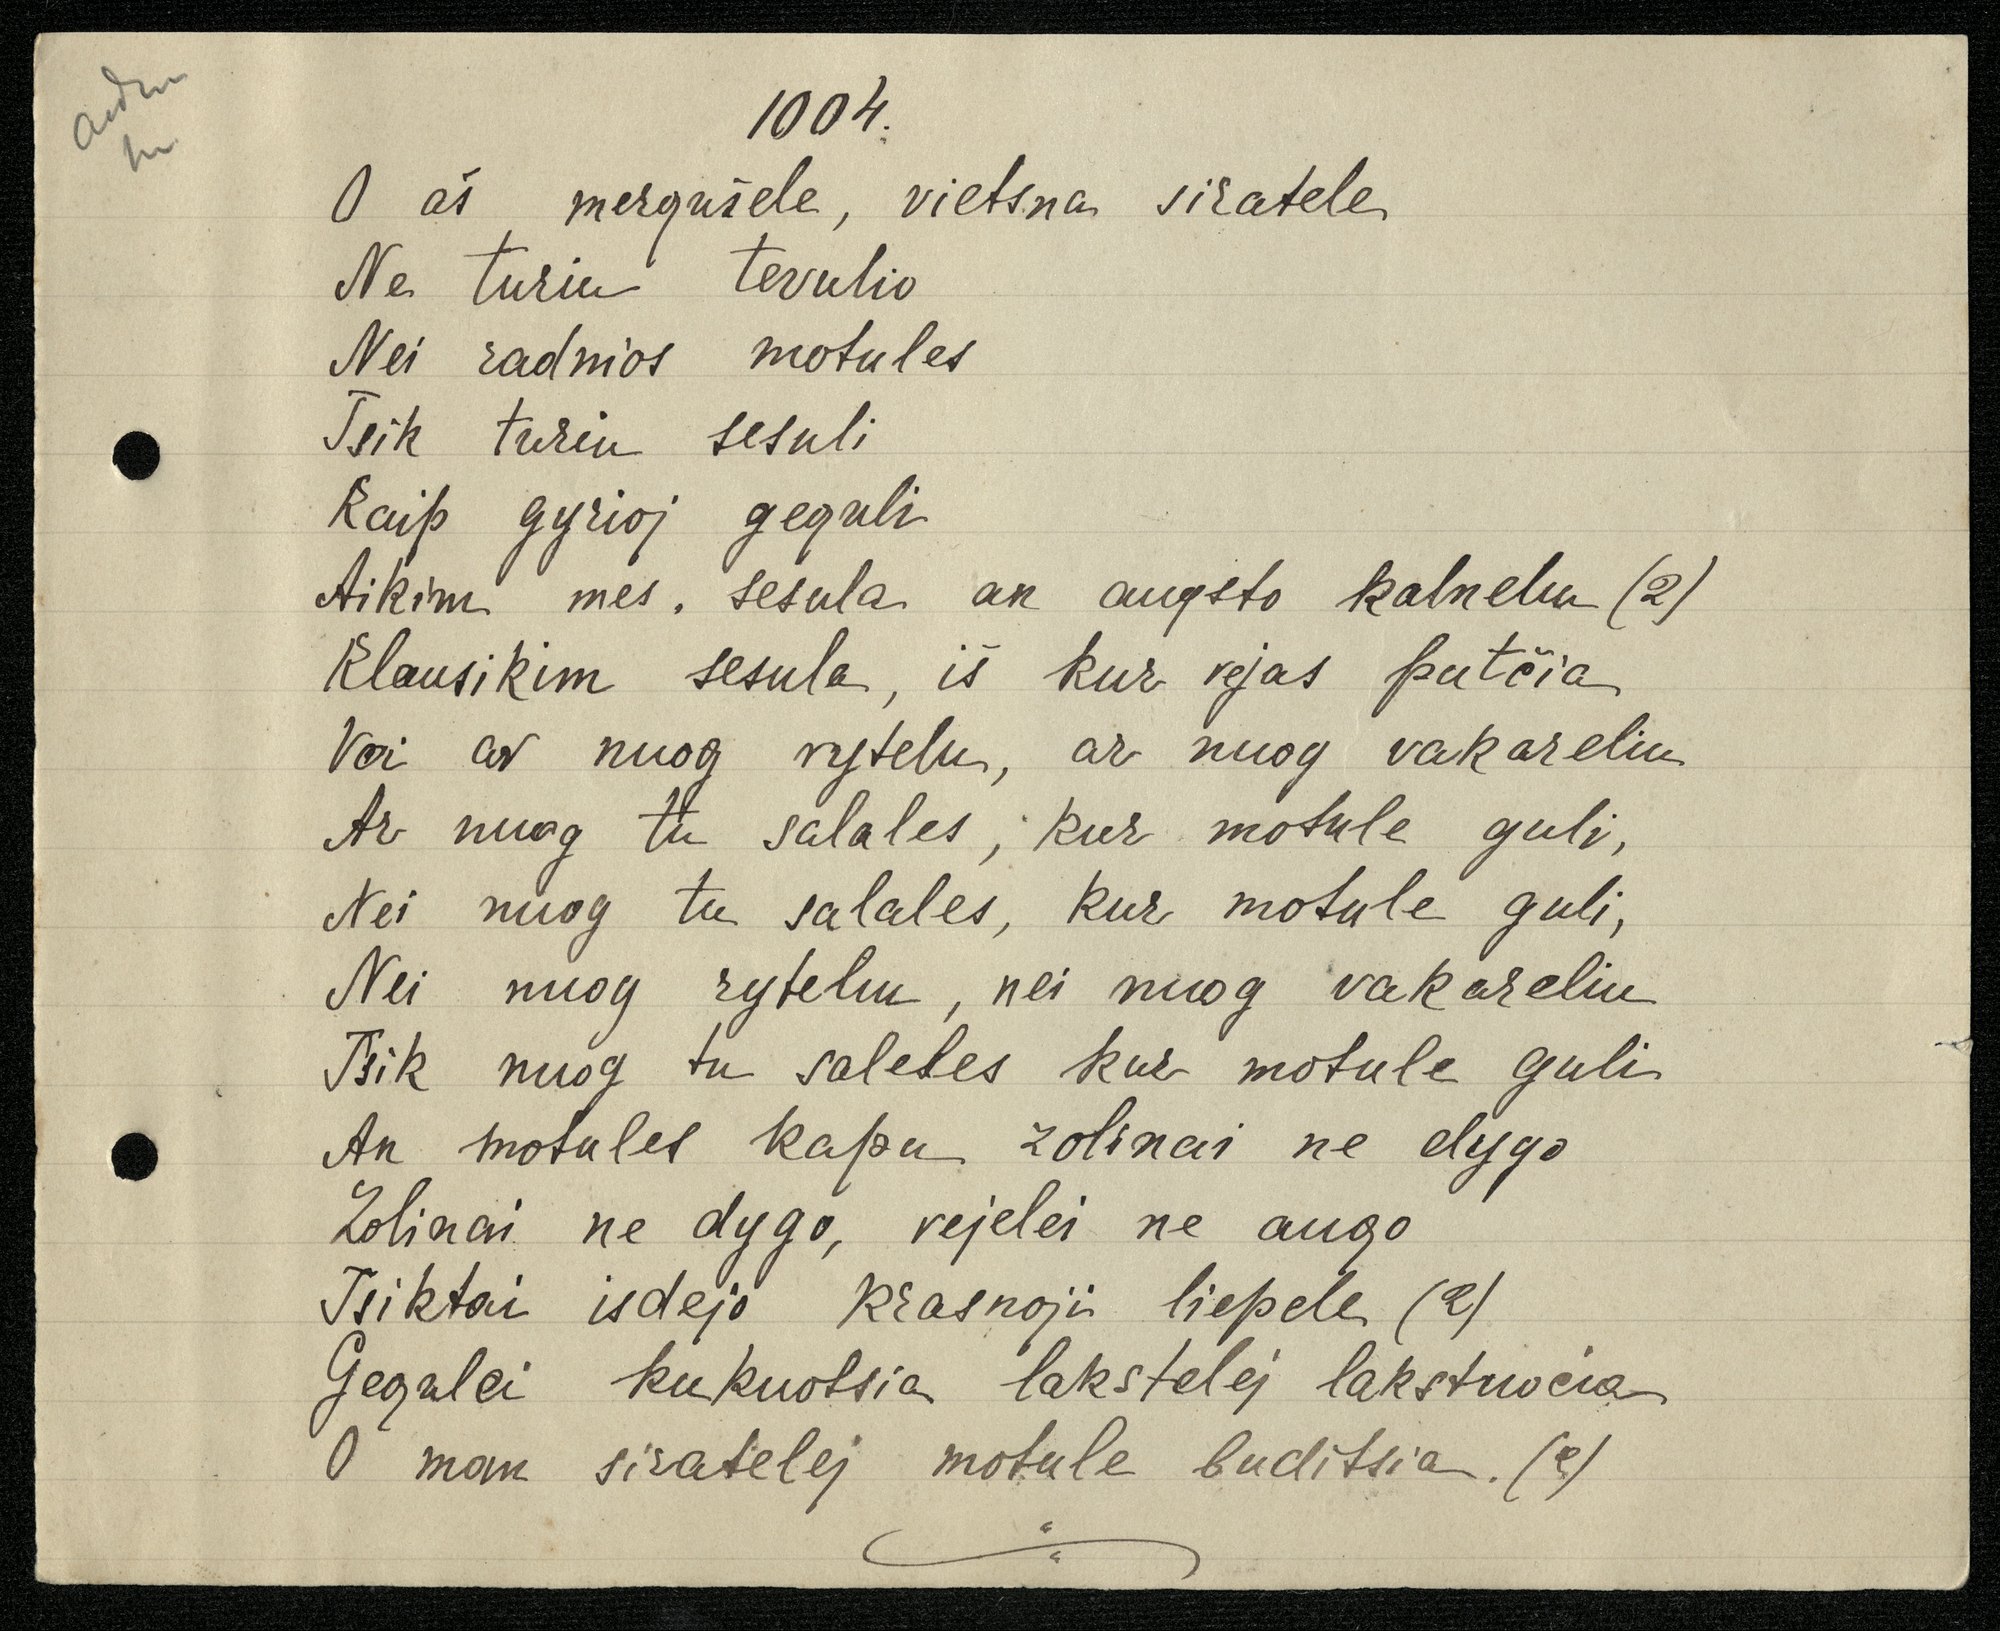 1004.
O aš mergušele, vietsna siratele
Ne turiu tevulio
Nei radnios motules
Tsik turiu sesuli
Kaip gyrioj geguli
Aikim mes. sesula an augsto kalnelu (2)
Klausikim sesula, iš kur vejas putčia
Vai ar nuog rytelu, ar nuog vakareliu
Ar nuog tu salales, kur motule guli,
Nei nuog tu salales, kur motule guli,
Nei nuog rytelu, nei nuog vakareliu
Tsik nuog tu saleles kur motule guli
An motules kapu zolinai ne dygo
Zolinai ne dygo, vejelei ne augo
Tsiktai isdejo krasnoji liepele (2)
Gegulei kukuotsia lakstelej lakstuocia
O man siratelej motule buditsia. (2)